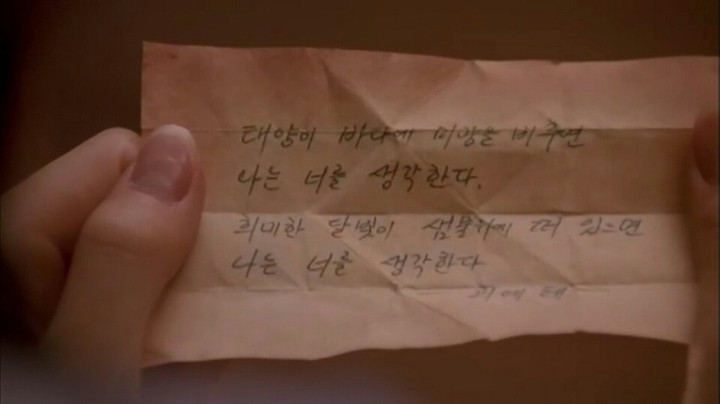 태양이 바다에 미망을 비추면
나는 너를 생각한다.
희미한 달빛이 샘물위에 떠 있으면
나는 너를 생각한다
괴에테